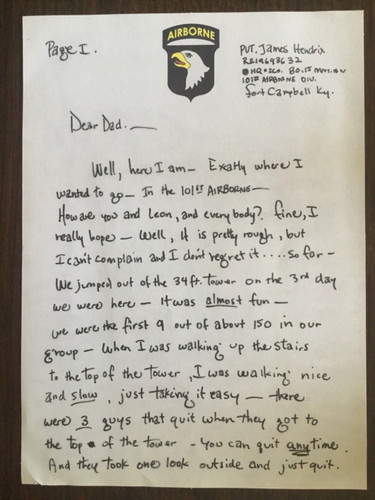 AIRBORNE
Page I.
PVT. James Hendrix
HQ & Co.
101st AIRBORNE DIV.
Fort Campbell Ky.
Dear Dad.—
Well, here I am — Exatly where I
wanted to go — In the 101st AIRBORNE —
How are you and Leon, and everybody? fine, I
really hope — Well, It is pretty rough, but
I can't complain and I don't regret it .... so far —
We jumped out of the 34 ft. tower on the 3rd day
we were here — It was almost fun —
we were the first 9 out of about 150 in our
group — When I was walking up the stairs
to the top of the tower, I was walking nice
and slow, just taking it easy — there
were 3 guys that quit when they got to
the top of the tower - You can quit anytime.
And they took one look outside and just quit.